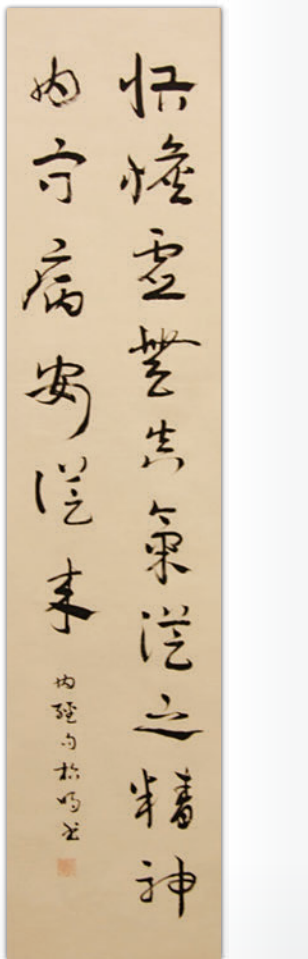 恬憺虚無真氣從之精神
内守病安從来
内經句書